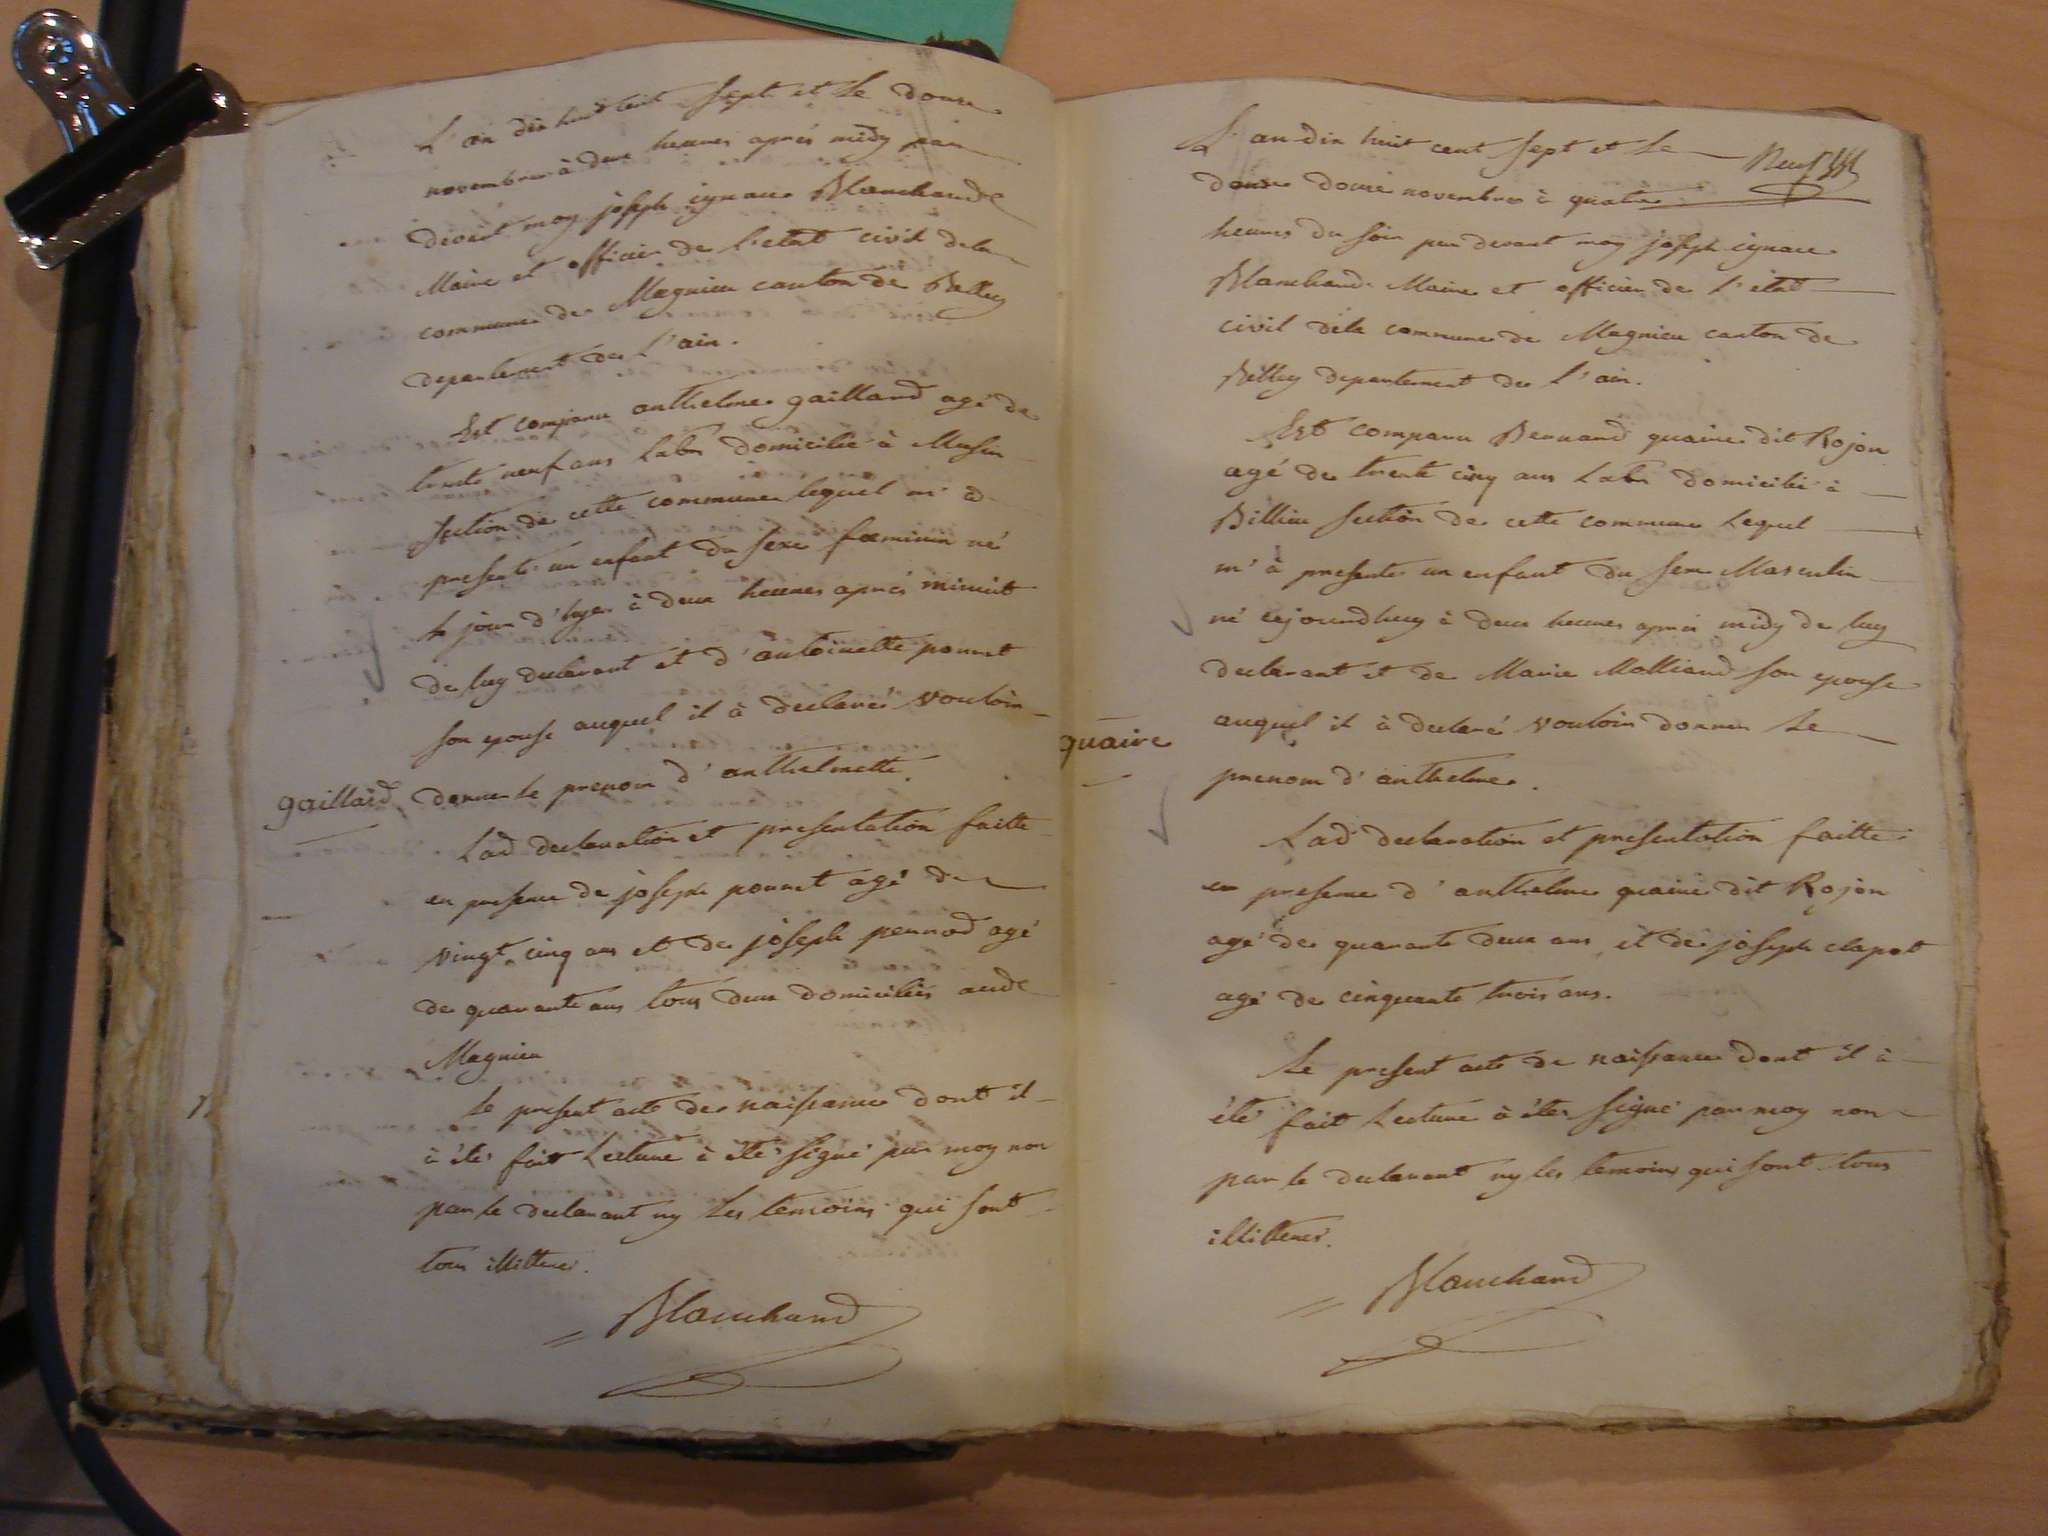 L'an dix huit cent sept et le douze
novembre à deux heures après midy par
devant moy joseph ignace Blanchard
Maire et officier de l'etat civil dela
commune de Magnieu canton de Belley
departement de l'ain.
Est comparu anthelme gaillard agé de
trente neuf ans labr domicilié à Musin
section de cette commune lequel m'a
presenté un enfant du sexe foeminin né
le jour d'hyer à deux heures après minuit
de luy declarant et d'antoinette pourret
son epouse auquel il à declaré vouloir
gaillard donner le prenom d'anthelmette.
Lad declaration et presentation faitte
en presence de joseph pourret agé de
vingt cinq ans et de joseph pernod agé
de quarante ans tous deux domiciliés aud
Magnieu
Le present acte de naissance dont il
à été fait Lecture à été signé par moy non
par le declarant ny les temoins qui sont
tous illitterés.
Blanchard
L'an dix huit cent sept et le Neuf
douze novembre à quatre
heures du soir par devant moy joseph ignace
Blanchard Maire et officier de l'état
civil dela commune de Magnieu canton de
Belley departement de l'ain.
Est comparu Bernard quaire dit Rojon
agé de trente cinq ans labr domicilié à
Billieu section de cette commune Lequel
m'à presenté un enfant du sexe Masculin
né cejourdhuy à deux heures après midy de luy
declarant et de Marie Molliard son epouse
quaire auquel il à declaré vouloir donner le
prenom d'anthelme.
Lad declaration et presentation faitte
en presence d'anthelme quaire dit Rojon
agé de quarante deux ans et de joseph clapot
agé de cinquante trois ans.
Le present acte de naissance dont il à
été fait Lecture à été signé par moy non
par le declarant ny les temoins qui sont tous
illitterés.
Blanchard